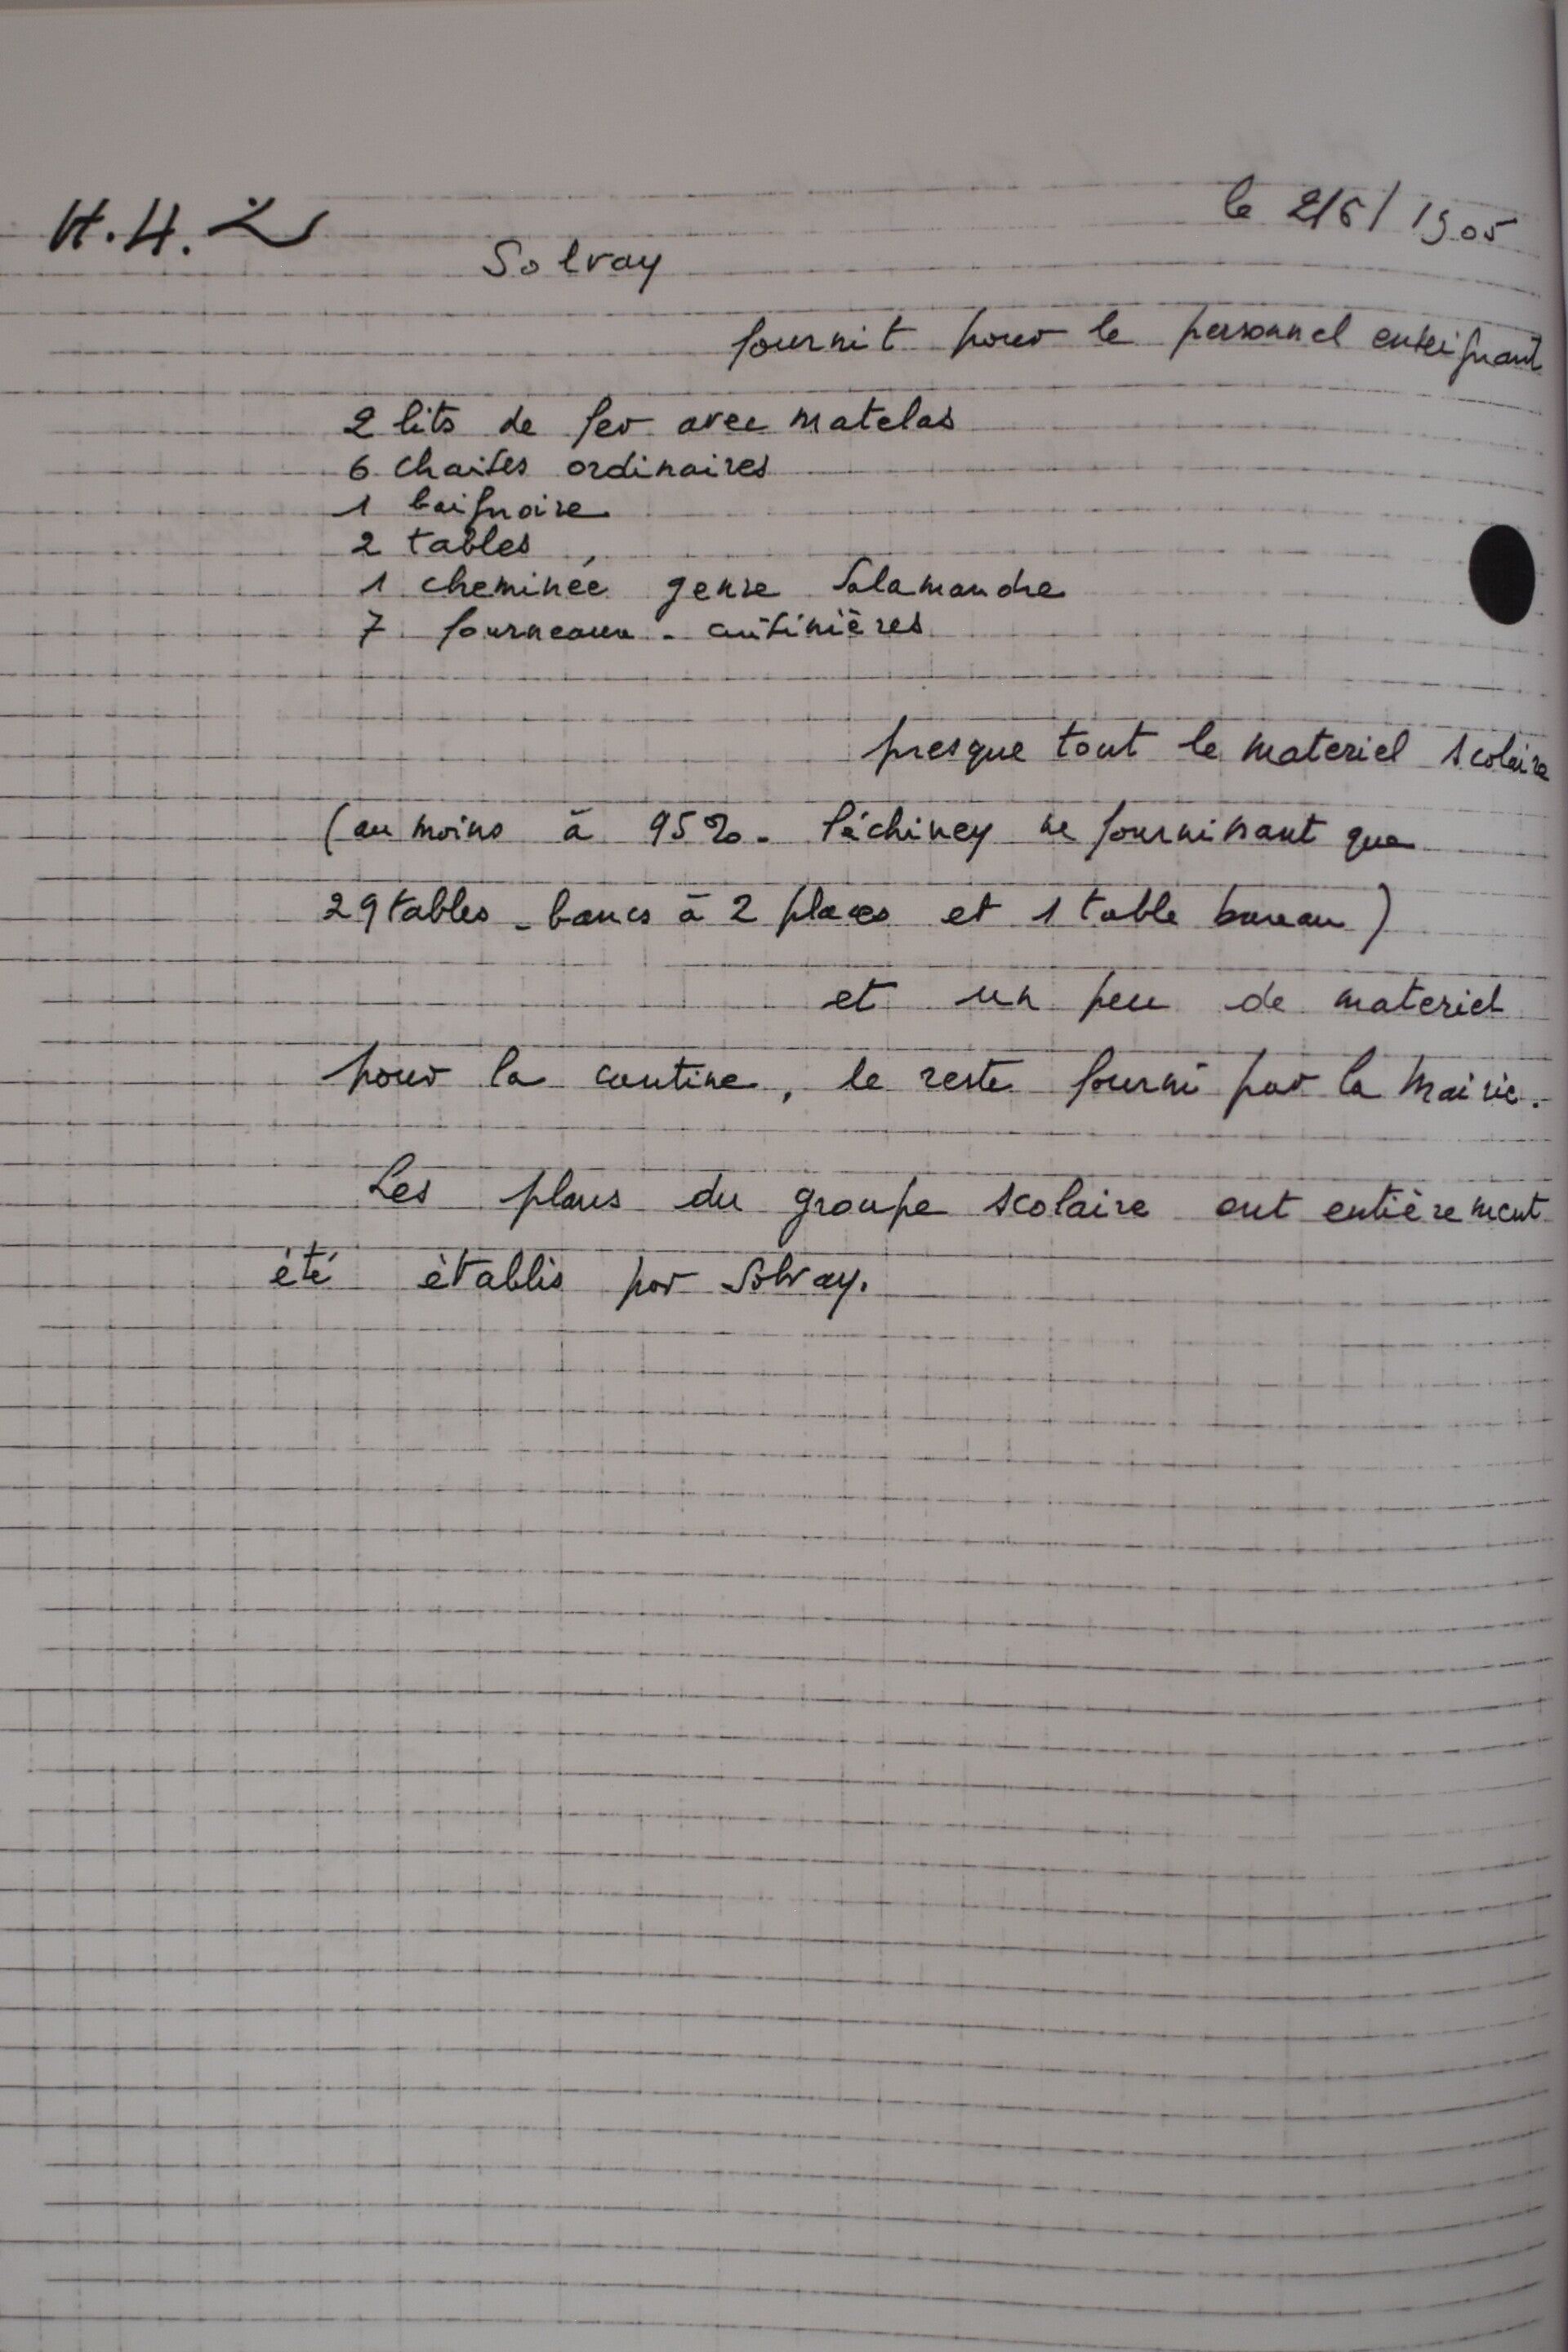 le 2/6/1905
H.H.2
Solvay
fournit pour le personnel enseignant
2 lits de fer avec matelas
6 chaises ordinaires
1 baignoire
2 tables
1 cheminée genre Salamandre
7 fourneaux - cuisinières
presque tout le materiel scolaire
(au moins à 95%. Péchiney ne fournissant que
29 tables - bancs à 2 places et 1 table bureau)
et un peu de materiel
pour la cantine, le reste fourni par la Mairie.
Les plans du groupe scolaire ont entièrement
été établis par Solvay.